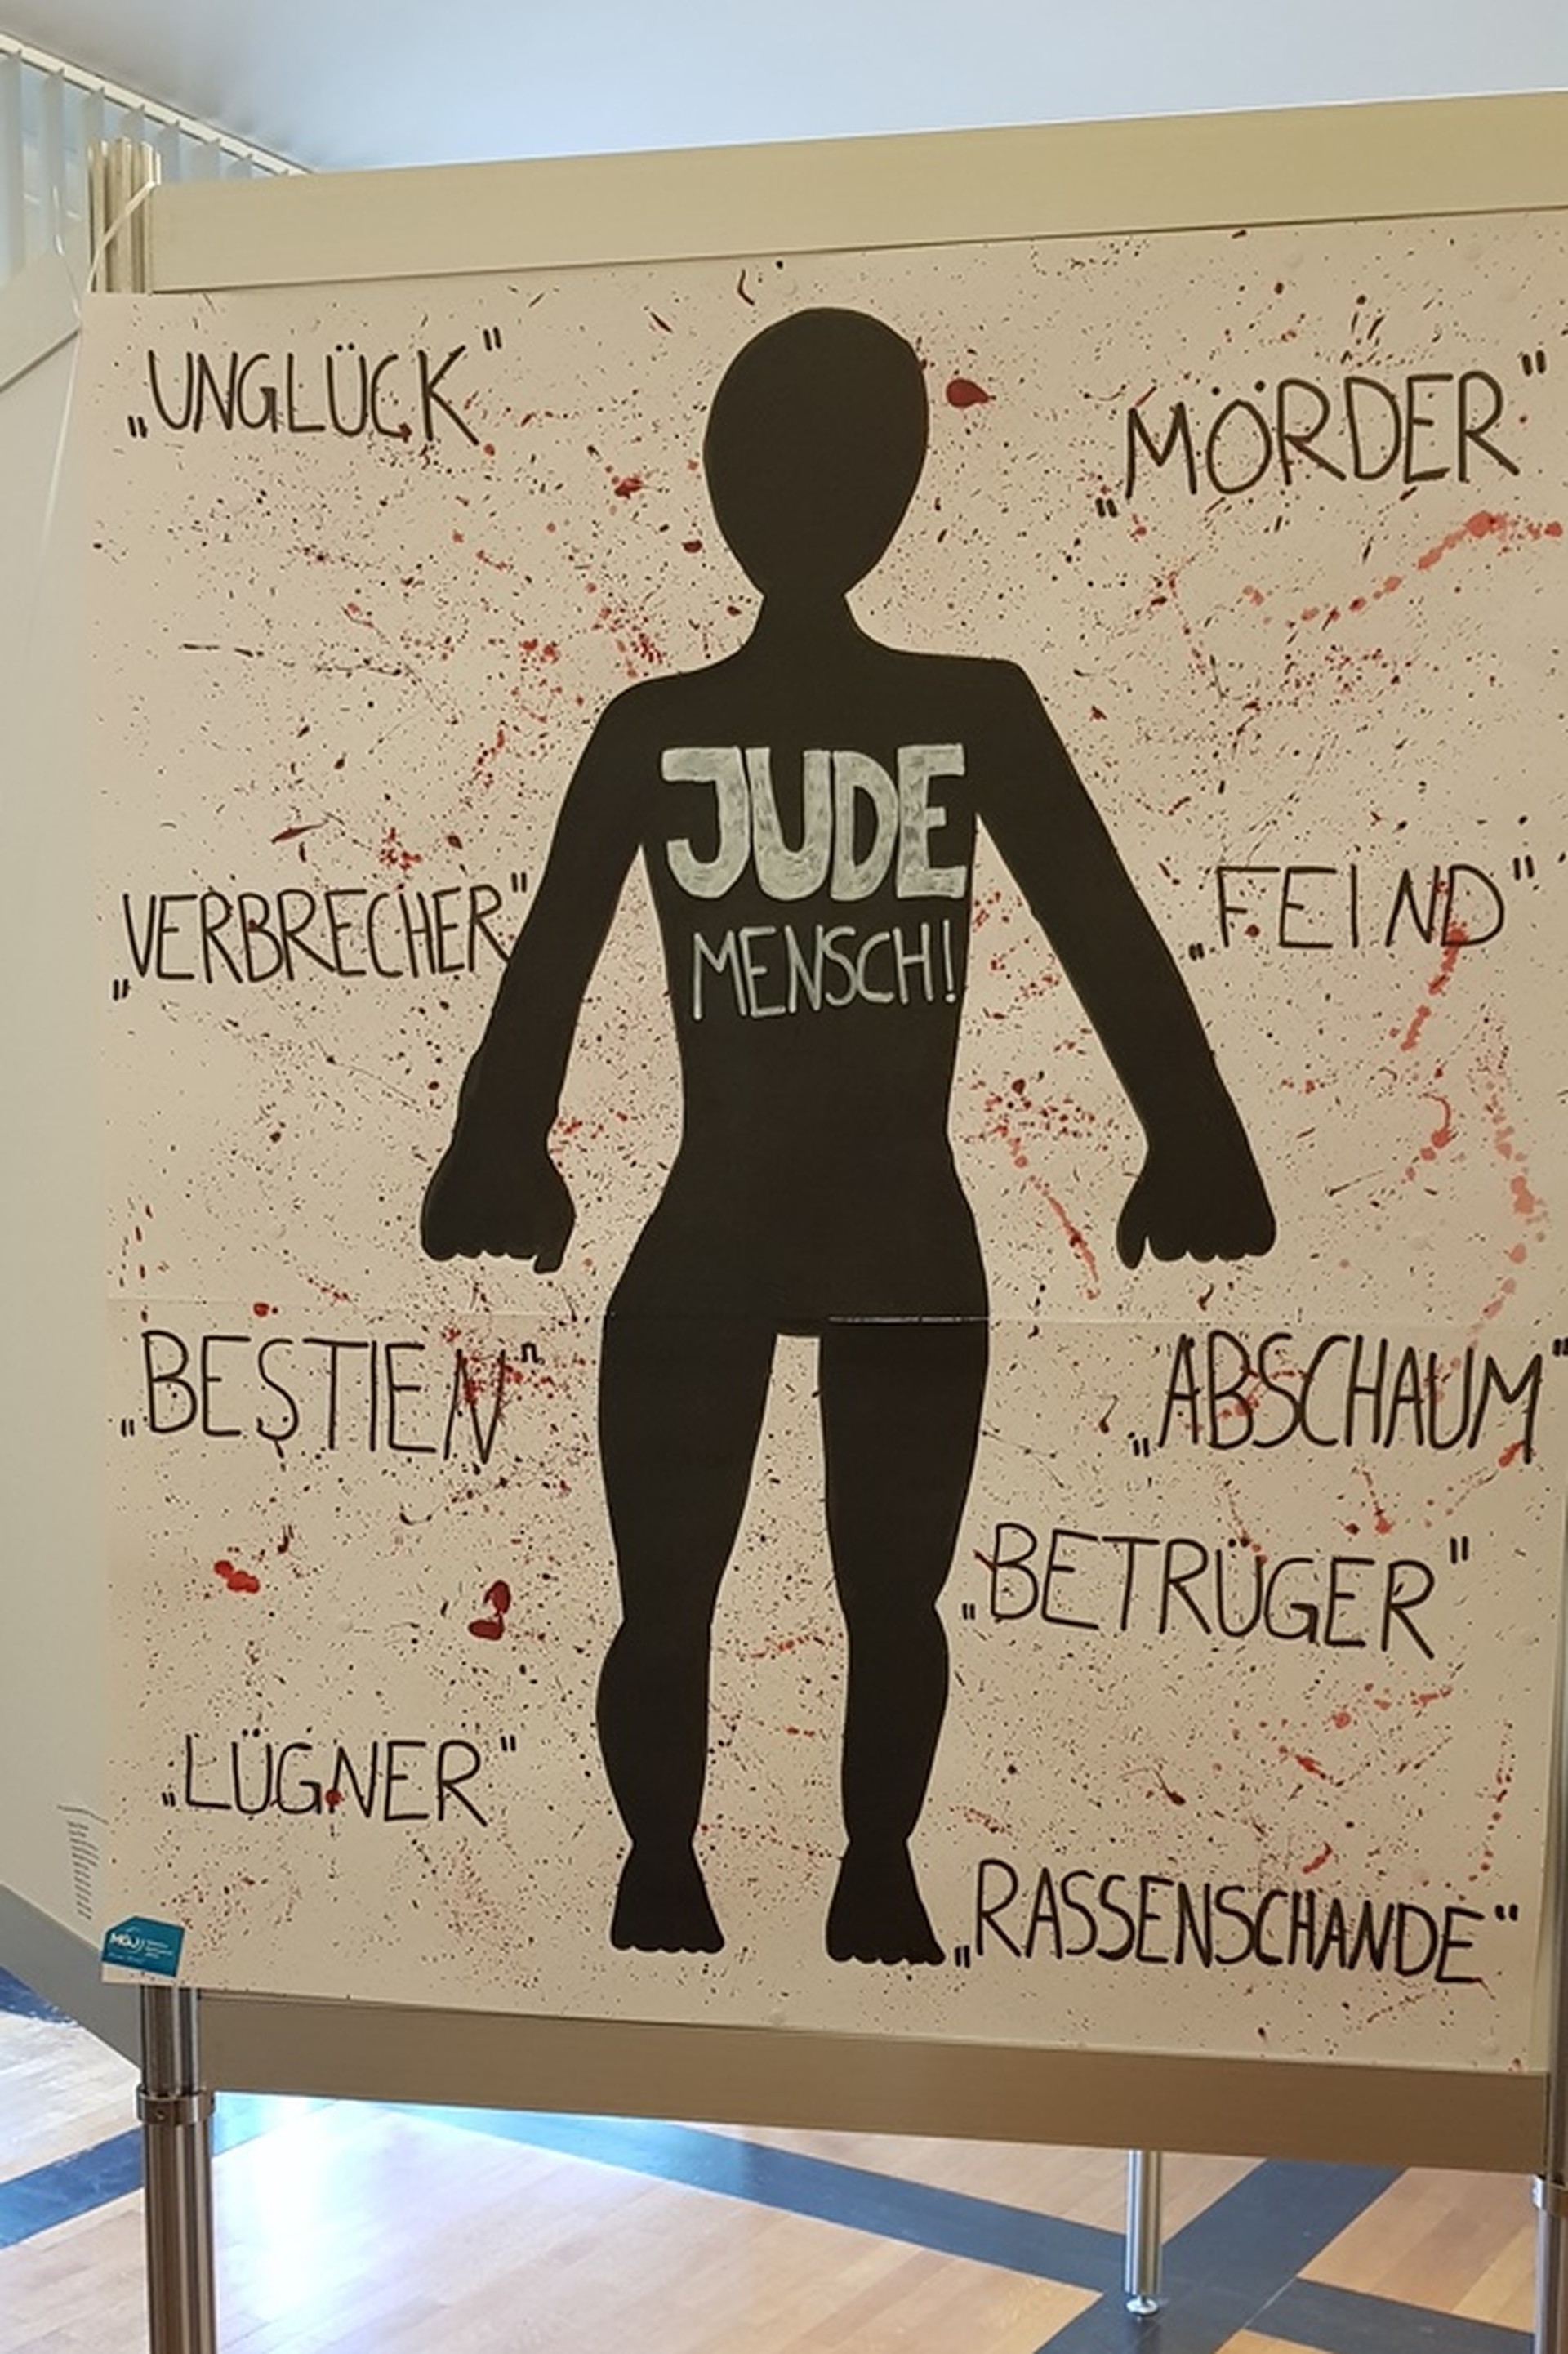 „UNGLÜCK"
„MÖRDER"
JUDE
MENSCH!
„VERBRECHER"
„FEIND"
„BESTIEN"
„ABSCHAUM"
„BETRÜGER"
„LÜGNER"
„RASSENSCHANDE"